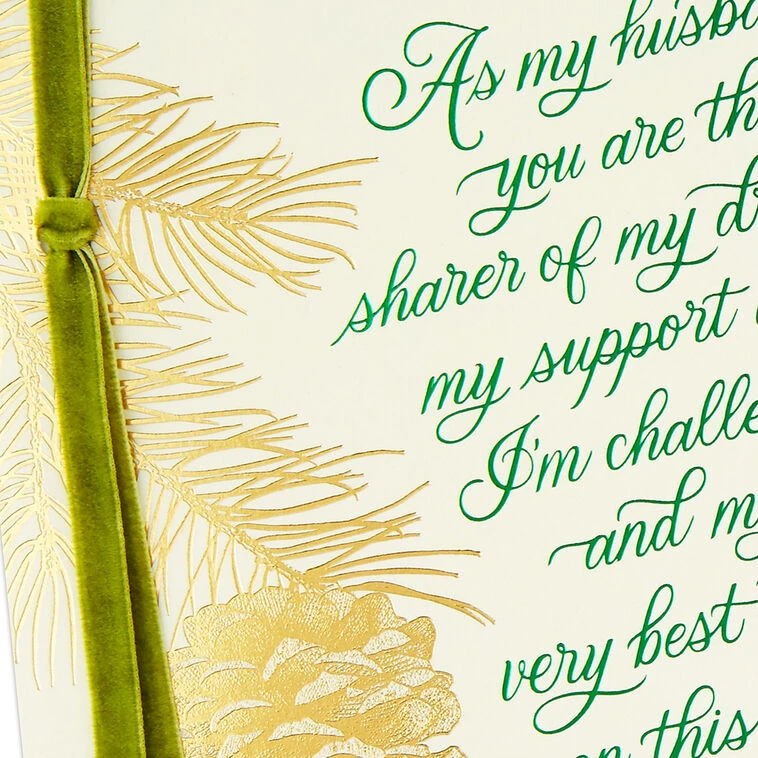 As my husba
you are th
sharer of my d
my support
I'm challe
and m
very best
on this